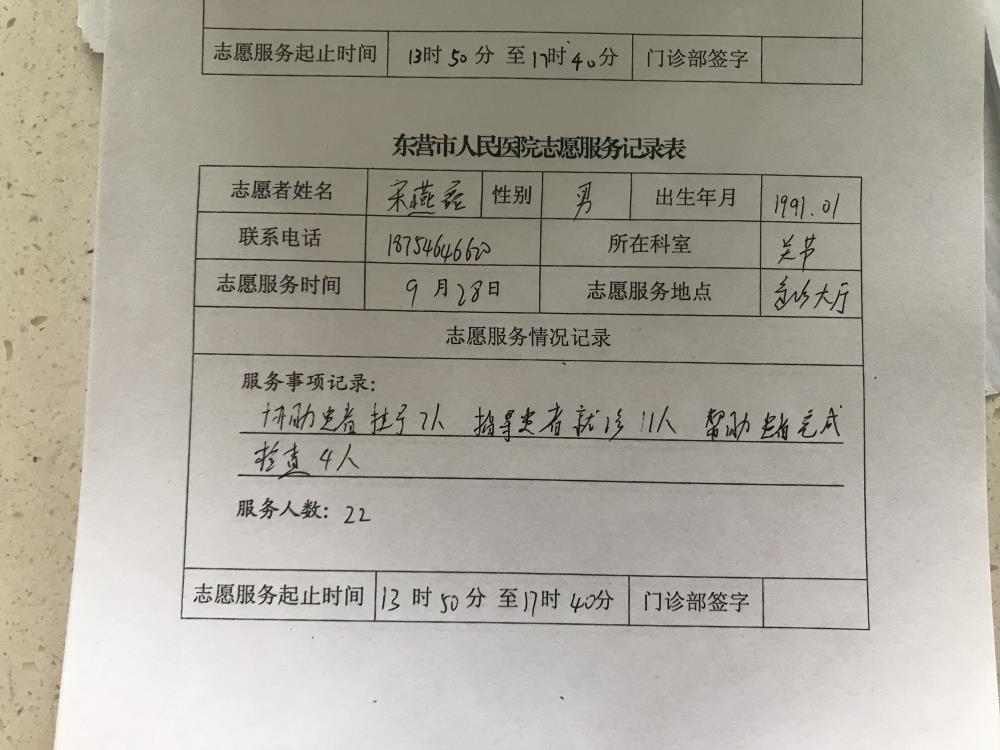 志愿服务起止时间 13时50分 至17时40分 门诊部签字
东营市人民医院志愿服务记录表
志愿者姓名 宋燕 性别 男 出生年月 1991.01
联系电话 18754646620 所在科室 关节
志愿服务时间 9月28日 志愿服务地点 门诊大厅
志愿服务情况记录
服务事项记录：
协助患者挂号7人 指导患者就诊11人 帮助患者完成
检查4人
服务人数：22
志愿服务起止时间 13时50分 至17时40分 门诊部签字